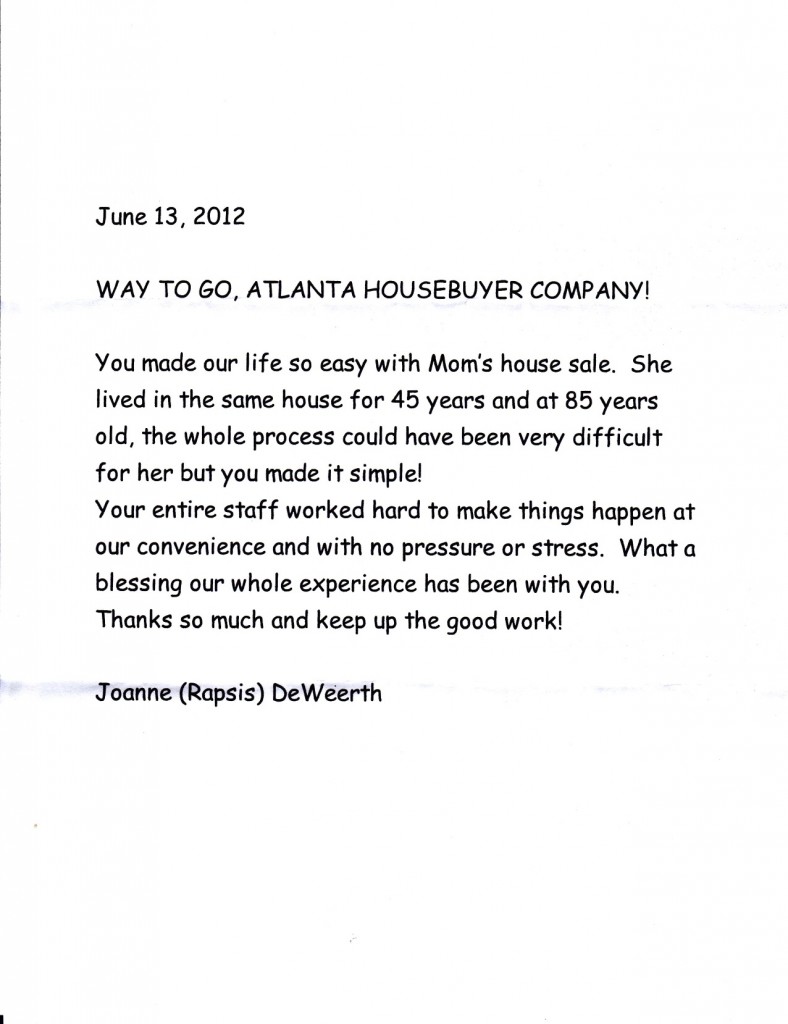 June 13, 2012
WAY TO GO, ATLANTA HOUSEBUYER COMPANY!
You made our life so easy with Mom's house sale.  She
lived in the same house for 45 years and at 85 years
old, the whole process could have been very difficult
for her but you made it simple!
Your entire staff worked hard to make things happen at
our convenience and with no pressure or stress.  What a
blessing our whole experience has been with you.
Thanks so much and keep up the good work!
Joanne (Rapsis) DeWeerth